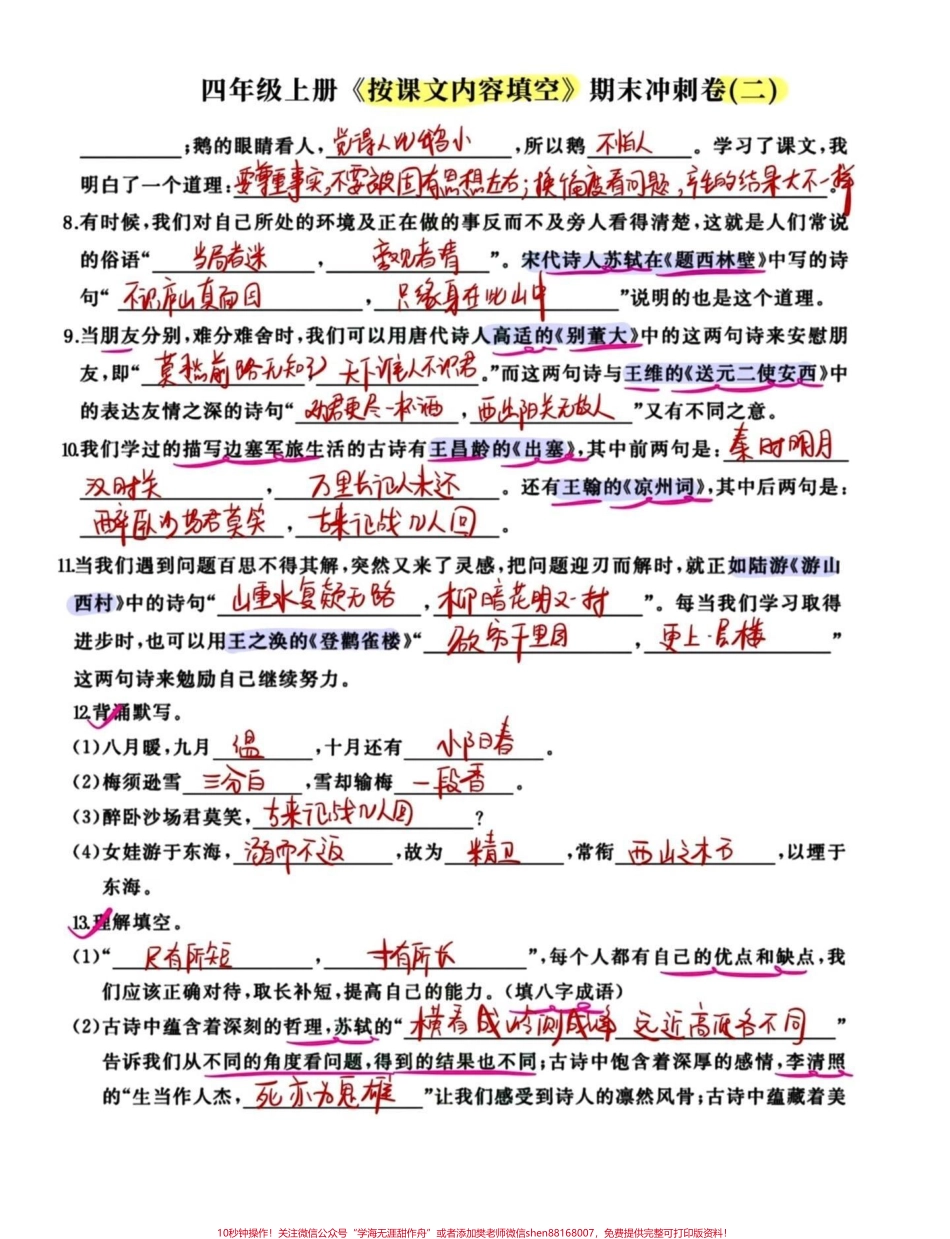 四年级上册《按课文内容填空》期末冲刺卷(二)
;鹅的眼睛看人,觉得人比鹅小,所以鹅不怕人。学习了课文,我
明白了一个道理:要尊重事实,不要被固有思想左右;换個度看问题,产生的结果大不一样。
8.有时候,我们对自己所处的环境及正在做的事反而不及旁人看得清楚,这就是人们常说
的俗语“当局者迷,旁观者清”。宋代诗人苏轼在《题西林壁》中写的诗
句“不识庐山真面目,只缘身在此山中”说明的也是这个道理。
9.当朋友分别,难分难舍时,我们可以用唐代诗人高适的《别董大》中的这两句诗来安慰朋
友,即“莫愁前路无知己 天下谁人不识君。”而这两句诗与王维的《送元二使安西》中
的表达友情之深的诗句“劝君更尽一杯酒,西出阳关无故人”又有不同之意。
10.我们学过的描写边塞军旅生活的古诗有王昌龄的《出塞》,其中前两句是:秦时明月
汉时关,万里长征人未还。还有王翰的《凉州词》,其中后两句是:
醉卧沙场君莫笑,古来征战几人回。
11.当我们遇到问题百思不得其解,突然又来了灵感,把问题迎刃而解时,就正如陆游《游山
西村》中的诗句“山重水复疑无路,柳暗花明又一村”。每当我们学习取得
进步时,也可以用王之涣的《登鹳雀楼》“欲穷千里目,更上一层楼”
这两句诗来勉励自己继续努力。
12.背诵默写。
(1)八月暖,九月温,十月还有小阳春。
(2)梅须逊雪三分白,雪却输梅一段香。
(3)醉卧沙场君莫笑,古来征战几人回?
(4)女娃游于东海,溺而不返,故为精卫,常衔西山之木石,以堙于
东海。
13.理解填空。
(1)“尺有所短,寸有所长”,每个人都有自己的优点和缺点,我
们应该正确对待,取长补短,提高自己的能力。(填八字成语)
(2)古诗中蕴含着深刻的哲理,苏轼的“横看成岭侧成峰 远近高低各不同”
告诉我们从不同的角度看问题,得到的结果也不同;古诗中饱含着深厚的感情,李清照
的“生当作人杰,死亦为鬼雄”让我们感受到诗人的凛然风骨;古诗中蕴藏着美
10秒钟操作！关注微信公众号“学海无涯甜作舟”或者添加樊老师微信shen88168007，免费提供完整可打印版资料！